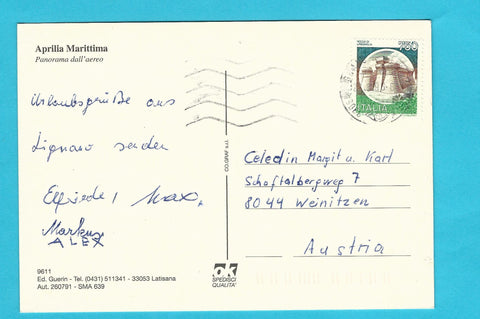 Aprilia Marittima
Panorama dall'aereo
Urlaubsgrüße aus
Lignano senden
Elfriede, Max,
Markus
ALEX
9611
Ed. Guerin - Tel. (0431) 511341 - 33053 Latisana
Aut. 260791 - SMA 639
CO.GRAF s.r.l.
ok
SPEDISCI
QUALITA'
750
ITALIA
Celedin Margit u. Karl
Schaftalbergweg 7
8044 Weinitzen
Austria